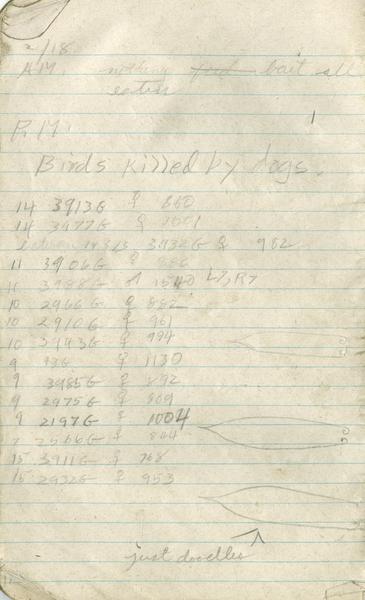 2/18.
A.M. nothing bait all
eaten
P.M.
Birds killed by dogs.
14 3913G ♀ 860
14 3977G ♀ 1001
3932G ♀ 962
11 3906G ♀ 886
11 3988G ♂ 1540 L7, R7
10 2966G ♀ 882
10 2910G ♀ 961
10 3943G ♀ 994
9 93G ♀ 1130
9 3985G ♀ 892
9 2975G ♀ 809
9 2197G ♀ 1004
7 2566G ♀ 804
15 3911G ♀ 768
15 2932G ♀ 953
just doodles